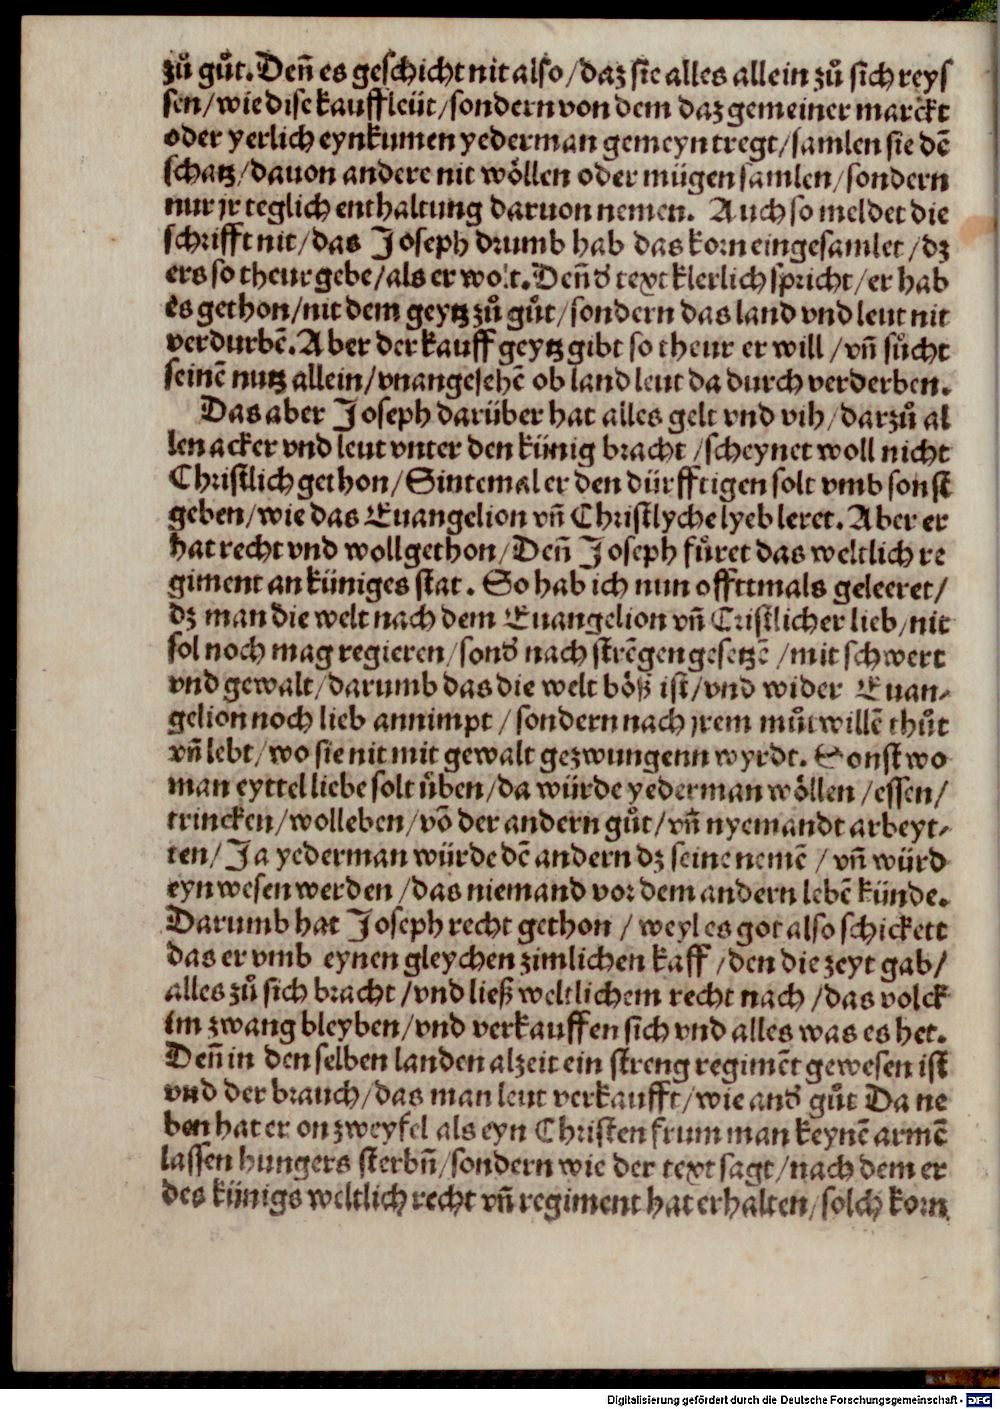 zů gůt. Deñ es geschicht nit also / daz sie alles allein zů sich reys
sen / wie dise kauffleüt / sondern von dem daz gemeiner marckt
oder yerlich eynkumen yederman gemeyn tregt / samlen sie dē
schatz / dauon andere nit wöllen oder mügen samlen / sondern
nur jr teglich enthaltung daruon nemen. Auch so meldet die
schrifft nit / das Joseph drumb hab das korn eingesamlet / dz
ers so theur gebe / als er wolt. Deñ d' text klerlich spricht / er hab
es gethon / nit dem geytz zů gůt / sondern das land vnd leut nit
verdurbē. Aber der kauff geytz gibt so theur er will / vñ sůcht
seinē nutz allein / vnangesehē ob land leut da durch verderben.
Das aber Joseph darüber hat alles gelt vnd vih / darzů al
len acker vnd leut vnter den künig bracht / scheynet woll nicht
Christlich gethon / Sintemal er den dürfftigen solt vmb sonst
geben / wie das Euangelion vñ Christlyche lyeb leret. Aber er
hat recht vnd woll gethon / Deñ Joseph fůret das weltlich re
giment an küniges stat. So hab ich nun offttmals geleeret /
dz man die welt nach dem Euangelion vñ Cristlicher lieb / nit
sol noch mag regieren / sond' nach strēgen gesetzē / mit schwert
vnd gewalt / darumb das die welt böß ist / vnd wider Euan-
gelion noch lieb annimpt / sondern nach jrem můtwillē thůt
vñ lebt / wo sie nit mit gewalt gezwungenn wyrdt. Sonst wo
man eyttel liebe solt üben / da würde yederman wöllen / essen /
trincken / wolleben / vō der andern gůt / vñ nyemandt arbeyt-
ten / Ja yederman würde dē andern dz seine nemē / vñ würd
eyn wesen werden / das niemand vor dem andern lebē künde.
Darumb hat Joseph recht gethon / weyl es got also schickett
das er vmb eynen gleychen zimlichen kaff / den die zeyt gab /
alles zů sich bracht / vnd ließ weltlichem recht nach / das volck
im zwang bleyben / vnd verkauffen sich vnd alles was es het.
Deñ in den selben landen alzeit ein streng regimēt gewesen ist
vnd der brauch / das man leut verkaufft / wie and' gůt Da ne
ben hat er on zweyfel als eyn Christen frum man keynē armē
lassen hungers sterbñ / sondern wie der text sagt / nach dem er
des künigs weltlich recht vñ regiment hat erhalten / solch korn
Digitalisierung gefördert durch die Deutsche Forschungsgemeinschaft - DFG